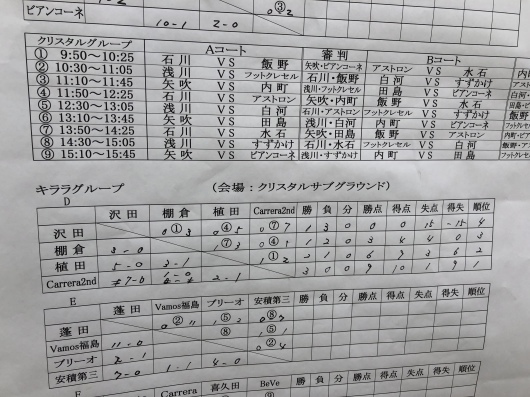 ビアンコーネ 10-1 2-0 ③
クリスタルグループ Aコート 審判 Bコート
① 9:50～10:25 石川 VS 飯野 矢吹・ビアンコーネ アストロン VS 水石
② 10:30～11:05 浅川 VS フットクレセル 石川・飯野 白河 VS すずかけ
③ 11:10～11:45 矢吹 VS 内町 浅川・フットクレセル 田島 VS ビアンコーネ
④ 11:50～12:25 石川 VS アストロン 矢吹・内町 飯野 VS 水石
⑤ 12:30～13:05 浅川 VS 白河 石川・アストロン フットクレセル VS すずかけ
⑥ 13:10～13:45 矢吹 VS 田島 浅川・白河 内町 VS ビアンコーネ
⑦ 13:50～14:25 石川 VS 水石 矢吹・田島 飯野 VS アストロン
⑧ 14:30～15:05 浅川 VS すずかけ 石川・水石 フットクレセル VS 白河
⑨ 15:10～15:45 矢吹 VS ビアンコーネ 浅川・すずかけ 内町 VS 田島
キララグループ （会場：クリスタルサブグラウンド）
D
沢田 棚倉 植田 Carrera2nd 勝 負 分 勝点 得点 失点 得失 順位
沢田 0①3 0④5 0⑦7 0 0 15 -15 4
棚倉 3-0 1⑦3 0④ 1 2 0 3 4 4 0 3
植田 5-0 3-1 1①2 2 1 0 6 9 3 6 2
Carrera2nd 7-0 1-0 2-1 3 0 0 9 10 1 9 1
E
蓬田 Vamos福島 ブリーオ 安積第三 勝 負 分 勝点 得点 失点 得失 順位
蓬田 0②11 1⑤2 0⑧7
Vamos福島 11-0 ⑧ 1⑤1
ブリーオ 2-1 0②4
安積第三 7-0 1-1 4-0
Carrera 喜久田 BeVe 勝 負 分 勝点 得点 失点 得失 順位